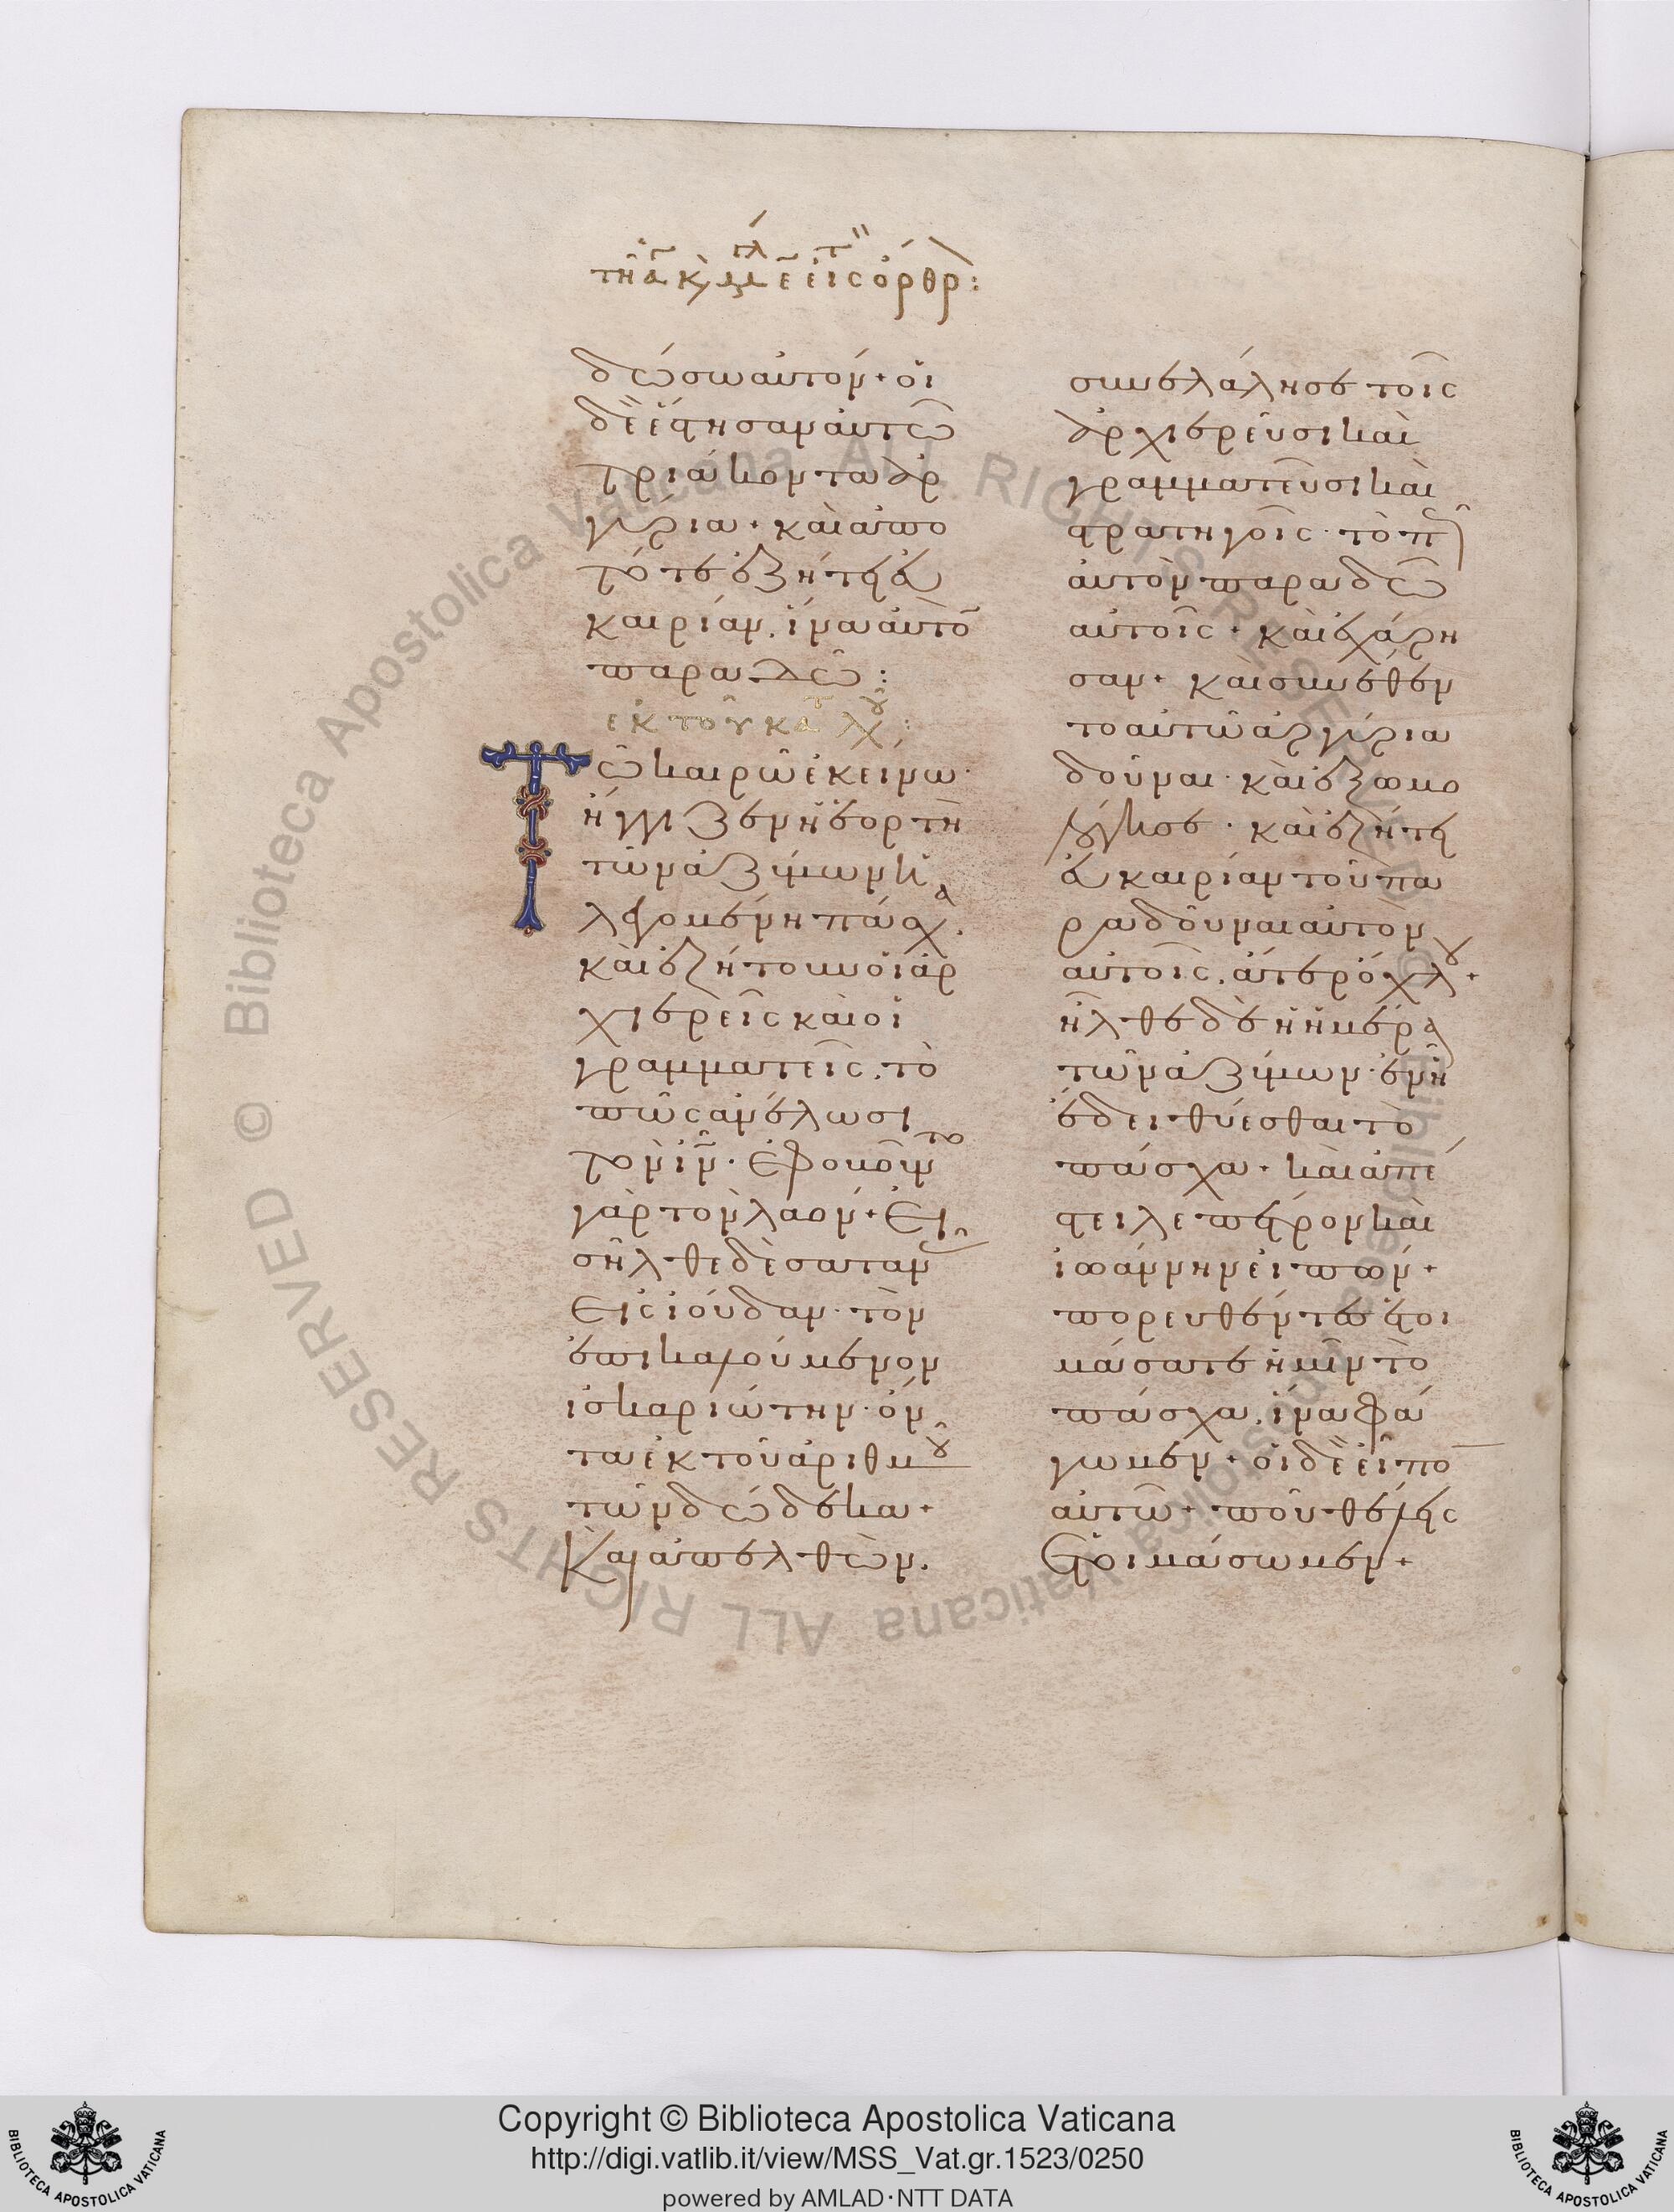 τῆ ἁγ κ μγλ ε εἰς ὄρθρ:
δώσω αὐτόν· οἱ
δὲ ἔφησαν αὐτῶ
τριάκοντα ἀρ
γύρια· καὶ ἀπο
τότε ἐζήτει εὐ
καιρίαν, ἵνα αὐτὸ
παραδῶ:
ἐκ τοῦ κατ λχου:
Τῶ καιρῶ ἐκείνω·
ἤγγιζεν ἡ ἑορτὴ
τῶν ἀζύμων ἡ
λεγομένη πάσχα.
καὶ ἐζήτουν οἱ ἀρ
χιερεῖς καὶ οἱ
γραμματεῖς, τὸ
πῶς ἀνέλωσι
τὸν ιν· ἐφοβοῦντο
γὰρ τὸν λαόν· Εἰ
σῆλθε δὲ σαταν
εἰς ἰούδαν τὸν
ἐπικαλούμενον
ἰσκαριώτην ὄν
τα ἐκ τοῦ ἀριθμοῦ
τῶν δώδεκα·
Καὶ ἀπελθὼν.
συνελάλησε τοῖς
ἀρχιερεῦσι καὶ
γραμματεῦσι καὶ
στρατηγοῖς· τὸ π
αὐτὸν παραδῶ
αὐτοῖς· καὶ ἐχάρη
σαν· καὶ συνέθεν
το αὐτῶ ἀργύρια
δοῦναι· καὶ ἐξωμο
λόγησε· καὶ ἐζήτει
εὐκαιρίαν τοῦ πα
ραδοῦναι αὐτὸν
αὐτοῖς, ἄτερ ὄχλου·
ἦλθε δὲ ἡ ἡμέρα
τῶν ἀζύμων· ἐν ἧ
ἔδει θύεσθαι τὸ
πάσχα· καὶ ἀπέ
στειλε πέτρον καὶ
ἰωάννην εἰπών·
πορευθέντες ἑτοι
μάσατε ἡμῖν τὸ
πάσχα, ἵνα φά
γωμεν· οἱ δὲ εἶπο
αὐτῶ· ποῦ θέλεις
ἑτοιμάσωμεν·
Copyright © Biblioteca Apostolica Vaticana
http://digi.vatlib.it/view/MSS_Vat.gr.1523/0250
powered by AMLAD·NTT DATA
BIBLIOTECA APOSTOLICA VATICANA
BIBLIOTECA APOSTOLICA VATICANA
© Biblioteca Apostolica Vaticana ALL RIGHTS RESERVED
© Biblioteca Apostolica Vaticana ALL RIGHTS RESERVED